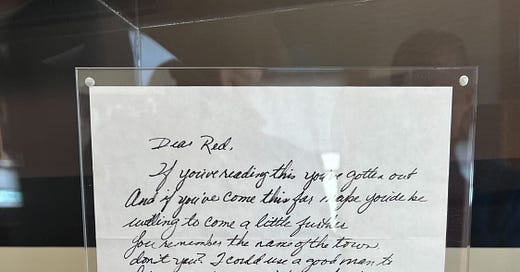 Dear Red,
If you're reading this you've gotten out
And if you've come this far maybe you'd be
willing to come a little further
You remember the name of the town
don't you? I could use a good man to